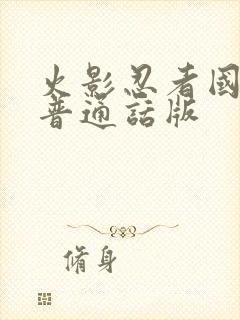 火影忍者國
普通話版
脩身